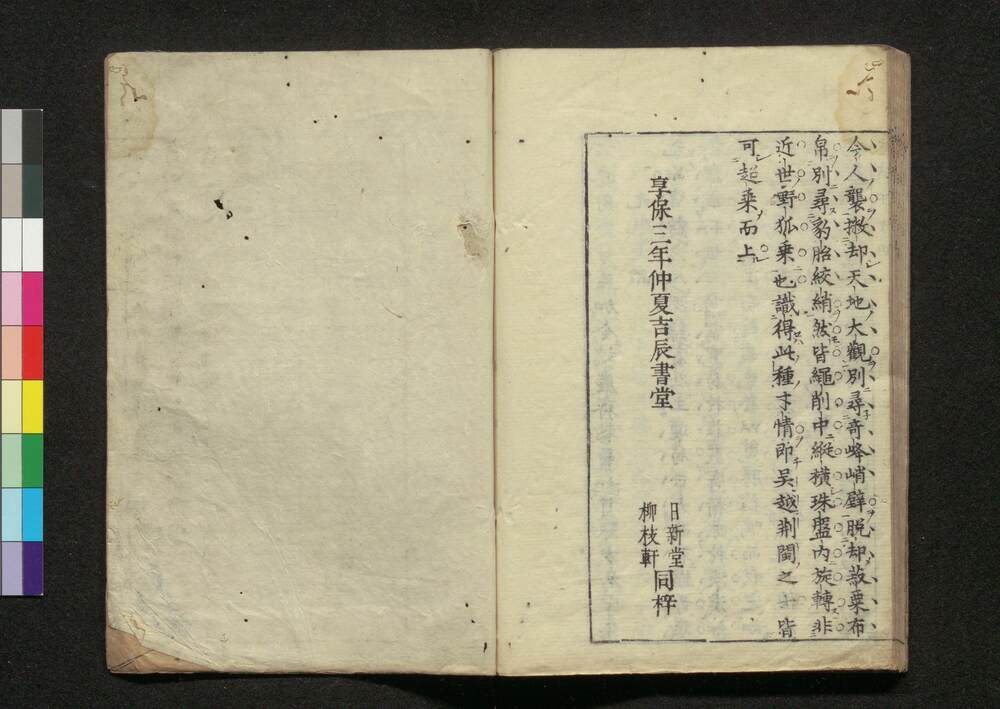 今人襲撤却天地大觀別尋奇峰峭壁脱却菽粟布
帛別尋豹胎絞綃然皆繩削中縱橫珠盤内旋轉非
近世野狐乘也識得此種才情即吴越荆閩之士皆
可超乘而上
享保三年仲夏吉辰書堂
日新堂
柳枝軒
同梓